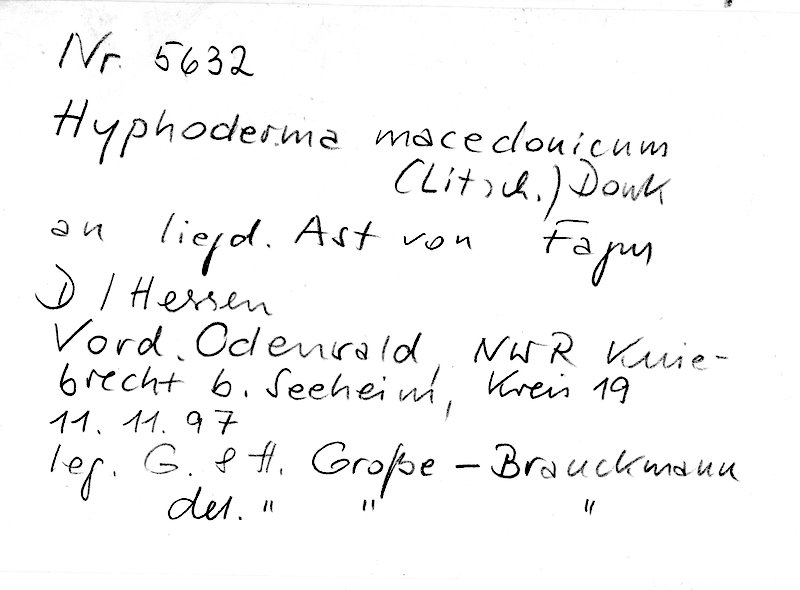 Nr. 5632
Hyphoderma macedonicum
(Litsch.) Donk
an liegd. Ast von Fagus
D / Hessen
Vord. Odenwald, NWR Knie-
brecht b. Seeheim, Kreis 19
11. 11. 97
leg. G. & H. Große - Brauckmann
det. " " "